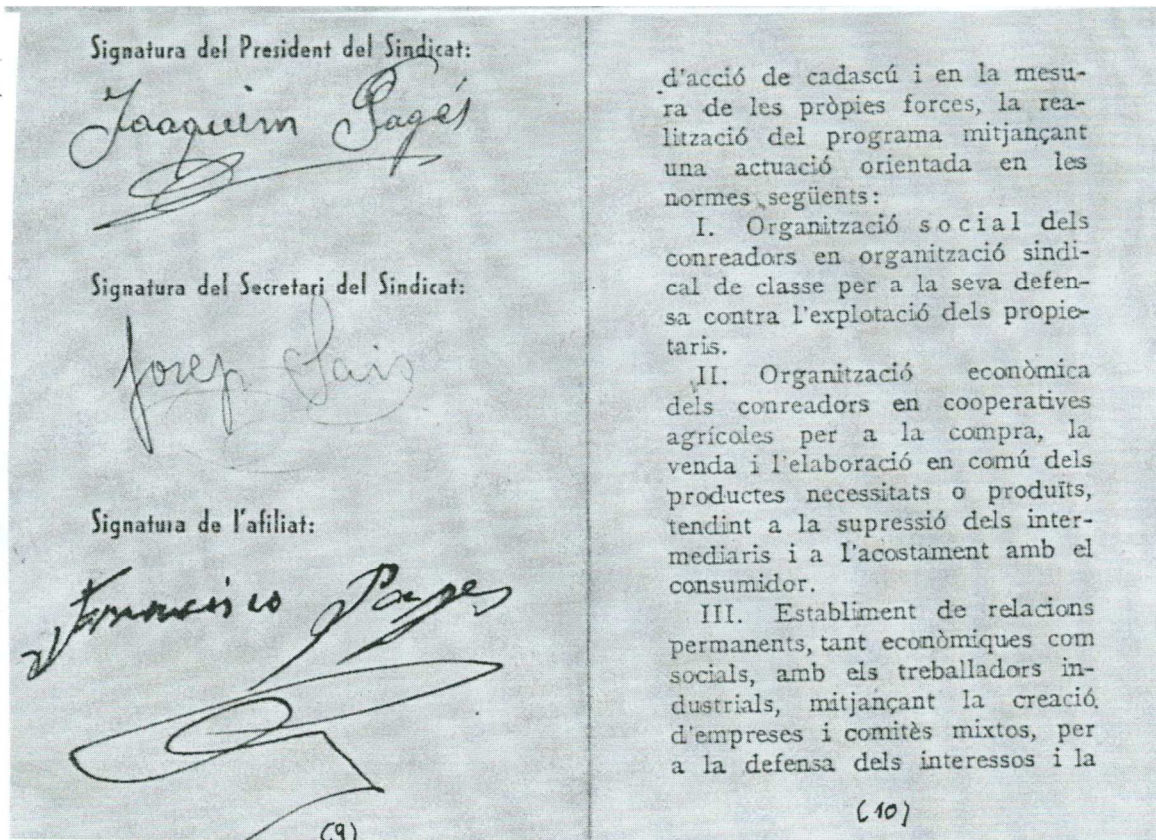 Signatura del President del Sindicat:
Joaquim Pagés
Signatura del Secretari del Sindicat:
Josep Sais
Signatura de l'afiliat:
Francisco Pages
(9)
d'acció de cadascú i en la mesu-
ra de les pròpies forces, la rea-
lització del programa mitjançant
una actuació orientada en les
normes següents:
I. Organització social dels
conreadors en organització sindi-
cal de classe per a la seva defen-
sa contra l'explotació dels propie-
taris.
II. Organització econòmica
dels conreadors en cooperatives
agrícoles per a la compra, la
venda i l'elaboració en comú dels
productes necessitats o produïts,
tendint a la supressió dels inter-
mediaris i a l'acostament amb el
consumidor.
III. Establiment de relacions
permanents, tant econòmiques com
socials, amb els treballadors in-
dustrials, mitjançant la creació
d'empreses i comitès mixtos, per
a la defensa dels interessos i la
(10)